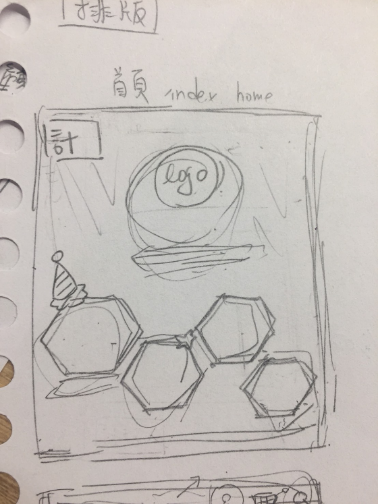 排版
首頁 inder home
計
logo